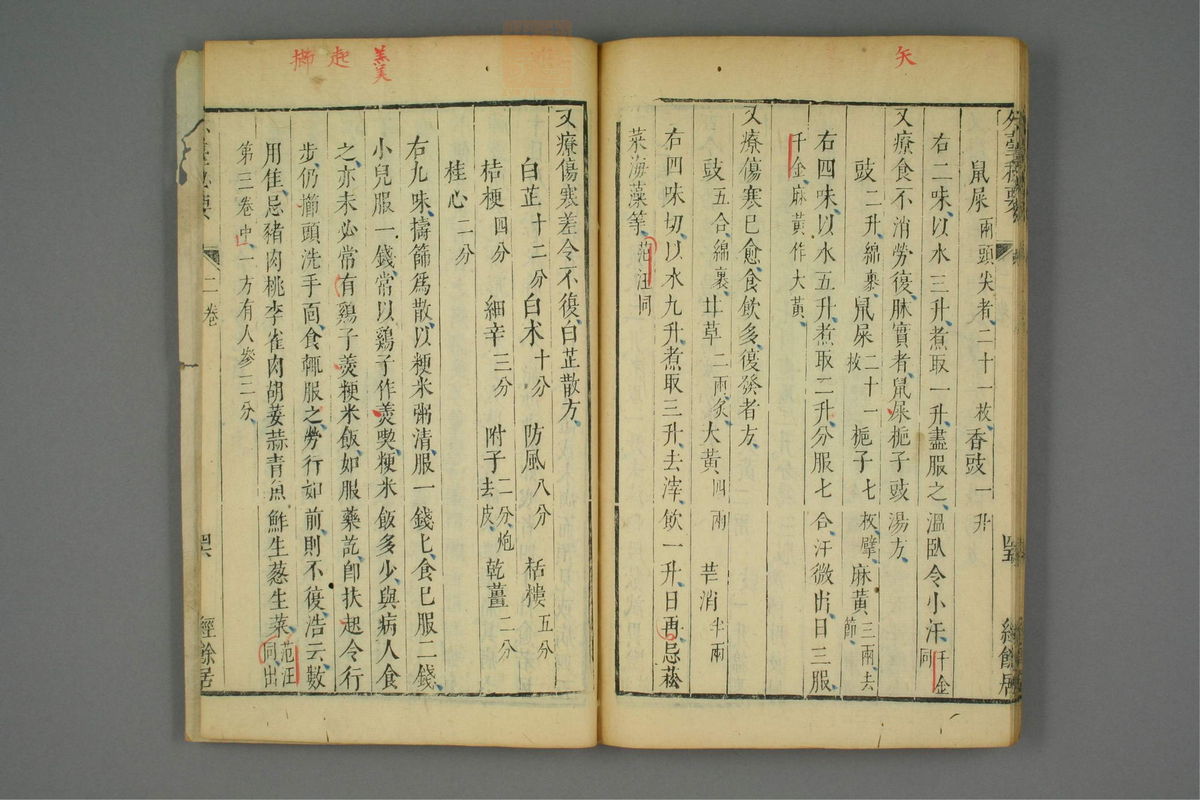 矢
外臺秘要
四五
經餘居
鼠屎兩頭尖者二十一枚香豉一升
右二味以水三升煮取一升盡服之溫臥令小汗千金同
又療食不消勞復脉實者鼠屎梔子豉湯方
豉二升綿裹鼠屎二十一枚梔子七枚擘麻黃三兩去節
右四味以水五升煮取二升分服七合汗微出日三服
千金麻黃作大黃
又療傷寒已愈食飲多復發者方
豉五合綿裹甘草二兩炙大黃四兩芒消半兩
右四味切以水九升煮取三升去滓飲一升日再忌菘
菜海藻等范汪同
羹 起 擳
又療傷寒差令不復白芷散方
白芷十二分白朮十分防風八分栝樓五分
桔梗四分細辛三分附子二分炮去皮乾薑二分
桂心二分
右九味擣篩爲散以粳米粥清服一錢匕食已服二錢
小兒服一錢常以鷄子作羹喫粳米飯多少與病人食
之亦未必常有鷄子羹粳米飯如服藥訖卽扶起令行
步仍擳頭洗手面食輒服之勞行如前則不復浩云數
用佳忌豬肉桃李雀肉胡荽蒜青魚鮓生葱生菜范汪同出
第三卷中一方有人參三分
二卷
四六
經餘居